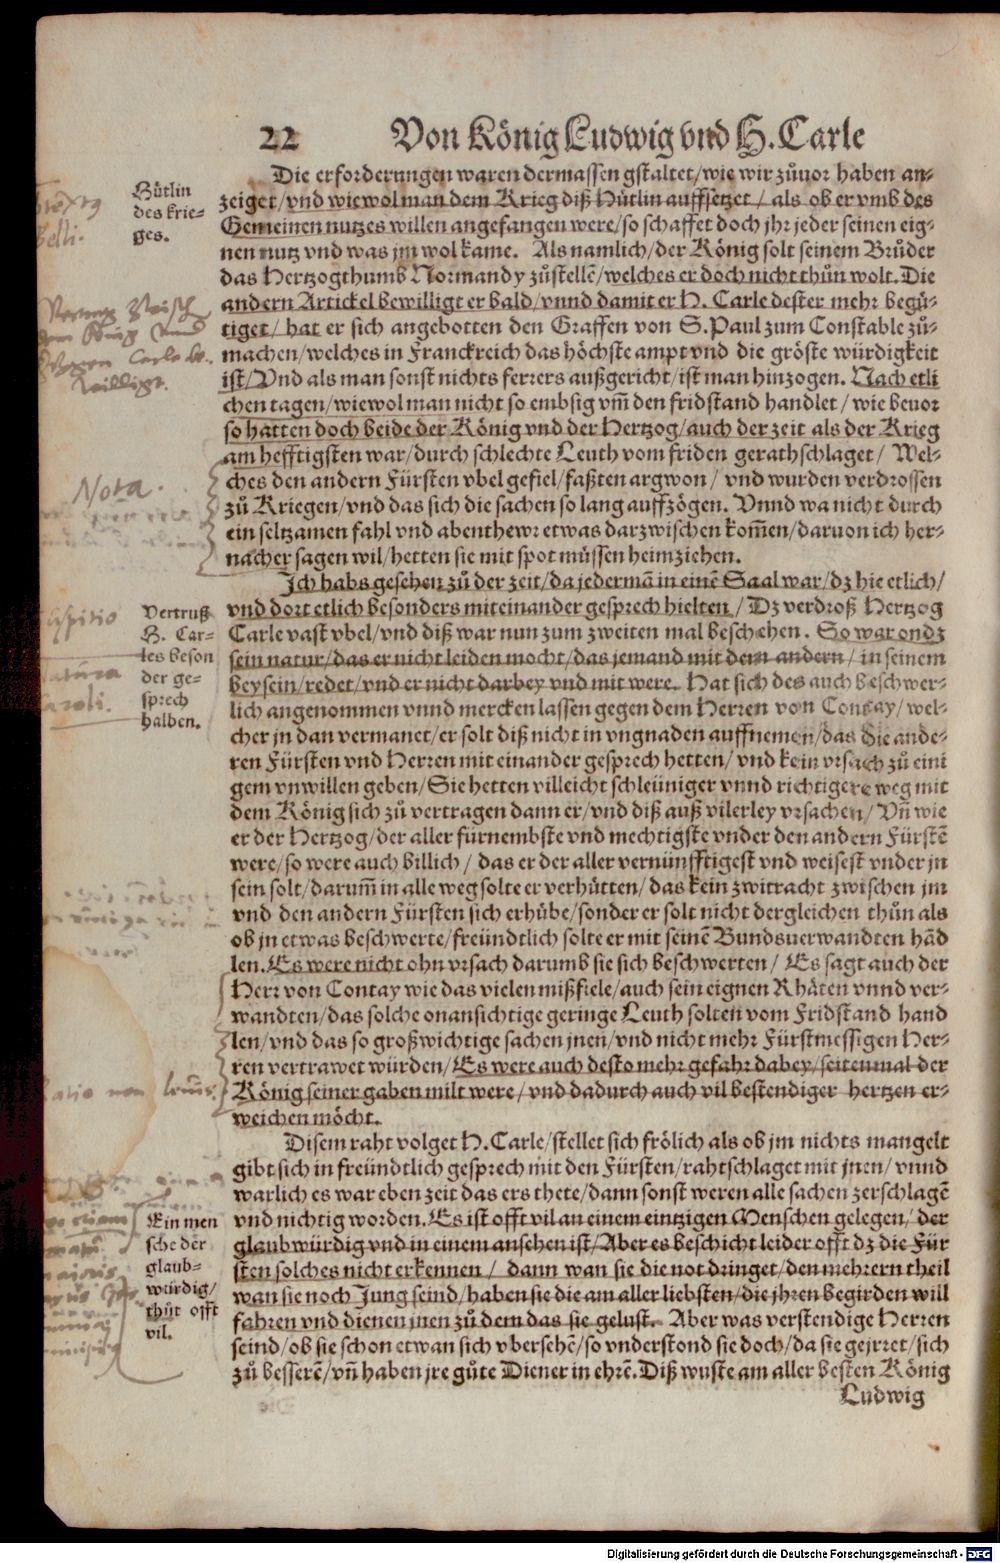 22 Von König Ludwig vnd H. Carle
Die erforderungen waren dermassen gstaltet/ wie wir zůuor haben an-
zeiget/ vnd wiewol man dem Krieg diß Hütlin auffsetzet/ als ob er vmb des
Gemeinen nutzes willen angefangen were/ so schaffet doch jhr jeder seinen eig-
nen nutz vnd was jm wol kame. Als namlich/ der König solt seinem Brůder
das Hertzogthumb Normandy zůstellē/ welches er doch nicht thůn wolt. Die
andern Artickel bewilligt er bald/ vnnd damit er H. Carle dester mehr begü-
tiget/ hat er sich angebotten den Graffen von S. Paul zum Constable zů-
machen/ welches in Franckreich das höchste ampt vnd die gröste würdigkeit
ist/ Vnd als man sonst nichts ferrers außgericht/ ist man hinzogen. Nach etli
chen tagen/ wiewol man nicht so embsig vm̄ den fridstand handlet/ wie beuor
so hatten doch beide der König vnd der Hertzog/ auch der zeit als der Krieg
am hefftigsten war/ durch schlechte Leuth vom friden gerathschlaget/ Wel-
ches den andern Fürsten vbel gefiel/ faßten argwon/ vnd wurden verdrossen
zů Kriegen/ vnd das sich die sachen so lang auffzögen. Vnnd wa nicht durch
ein seltzamen fahl vnd abenthewr etwas darzwischen kom̄en/ daruon ich her-
nacher sagen wil/ hetten sie mit spot müssen heimziehen.
Ich habs gesehen zů der zeit/ da jedermā in einē Saal war/ dz hie etlich/
vnd dort etlich besonders miteinander gesprech hielten/ Dz verdroß Hertzog
Carle vast vbel/ vnd diß war nun zum zweiten mal beschehen. So war ondz
sein natur/ das er nicht leiden mocht/ das jemand mit dem andern/ in seinem
beysein/ redet/ vnd er nicht darbey vnd mit were. Hat sich des auch beschwer-
lich angenommen vnnd mercken lassen gegen dem Herren von Contay/ wel-
cher jn dan vermanet/ er solt diß nicht in vngnaden auffnemen/ das die ande-
ren Fürsten vnd Herren mit einander gesprech hetten/ vnd kein vrsach zů eini
gem vnwillen geben/ Sie hetten villeicht schleüniger vnnd richtigere weg mit
dem König sich zů vertragen dann er/ vnd diß auß vilerley vrsachen/ Vn̄ wie
er der Hertzog/ der aller fürnembste vnd mechtigste vnder den andern Fürstē
were/ so were auch billich/ das er der aller vernünfftigest vnd weisest vnder jn
sein solt/ darum̄ in alle weg solte er verhütten/ das kein zwitracht zwischen jm
vnd den andern Fürsten sich erhübe/ sonder er solt nicht dergleichen thůn als
ob jn etwas beschwerte/ freündtlich solte er mit seinē Bundsuerwandten hād
len. Es were nicht ohn vrsach darumb sie sich beschwerten/ Es sagt auch der
Herr von Contay wie das vielen mißfiele/ auch sein eignen Rhäten vnnd ver-
wandten/ das solche onansichtige geringe Leuth solten vom Fridstand hand
len/ vnd das so großwichtige sachen jnen/ vnd nicht mehr Fürstmessigen Her-
ren vertrawet würden/ Es were auch desto mehr gefahr dabey/ seitenmal der
König seiner gaben milt were/ vnd dadurch auch vil bestendiger hertzen er-
weichen möcht.
Disem raht volget H. Carle/ stellet sich frölich als ob jm nichts mangelt
gibt sich in freündtlich gesprech mit den Fürsten/ rahtschlaget mit jnen/ vnnd
warlich es war eben zeit das ers thete/ dann sonst weren alle sachen zerschlagē
vnd nichtig worden. Es ist offt vil an einem eintzigen Menschen gelegen/ der
glaubwürdig vnd in einem ansehen ist/ Aber es beschicht leider offt dz die Für
sten solches nicht erkennen/ dann wan sie die not dringet/ den mehrern theil
wan sie noch Jung seind/ haben sie die am aller liebsten/ die jhren begirden will
fahren vnd dienen jnen zů dem das sie gelust. Aber was verstendige Herren
seind/ ob sie schon etwan sich vbersehē/ so vnderstond sie doch/ da sie gejrret/ sich
zů besserē/ vn̄ haben jre gůte Diener in ehrē. Diß wuste am aller besten König
Ludwig
Hütlin
des krie-
ges.
Nota.
Vertruß
H. Car-
les beson
der ge-
sprech
halben.
Ein men
sche der
glaub-
würdig/
thůt offt
vil.
Digitalisierung gefördert durch die Deutsche Forschungsgemeinschaft - DFG